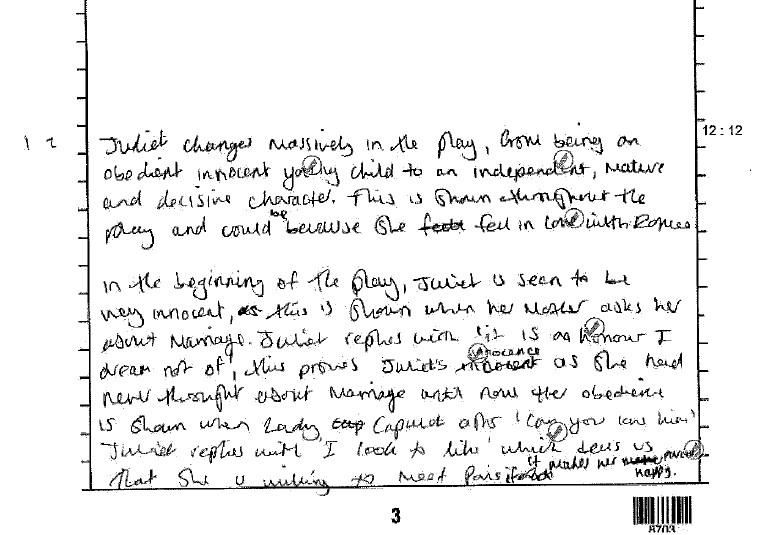 12:12
12 Juliet changes massively in the play, from being an
obedient innocent young child to an independent, mature
and decisive character. This is shown throughout the
play and could be because she fell in love with Romeo
In the beginning of the play, Juliet is seen to be
very innocent, as this is shown when her mother asks her
about marriage. Juliet replies with 'it is an honour I
dream not of', this proves Juliet's innocence as she had
never thought about marriage until now. Her obedience
is shown when Lady Capulet asks 'Can you love him'
Juliet replies with 'I look to like' which tells us
that she is willing to meet Paris if it makes her parents
happy.
3
8703